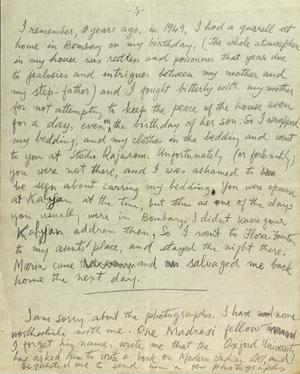 -4-
I remember, 9 years ago, in 1949, I had a quarell at
home in Bombay on my birthday, (the whole atmosphere
in my house was restless and poisonous that year due
to jealosies and intrigues between my mother and
my step-father) and I fought bitterly with my mother
for not attempting to keep the peace of the house even
for a day, even on the birthday of her son. So I wrapped
my bedding, and my clothes in the bedding and went
to you at Studio Rajaram. Unfortunately (or fortunately)
you were not there, and I was ashamed to
be seen about carrying my bedding. You were
at Kalyan at the time, but this as one of the days
you usually were in Bombay, I didn't know your
Kalyan address then, So I went to Flora Fountain
to my aunts' place, and stayed the night there.
Maria came and salvaged me back
home the next day.
I am sorry about the photographs. I have none
worthwhile with me. One Madrasi fellow
I forget his name, wrote me that the Oxford University
has asked him to write a book on Modern Indian Art, and
requested me to send him a few photographs